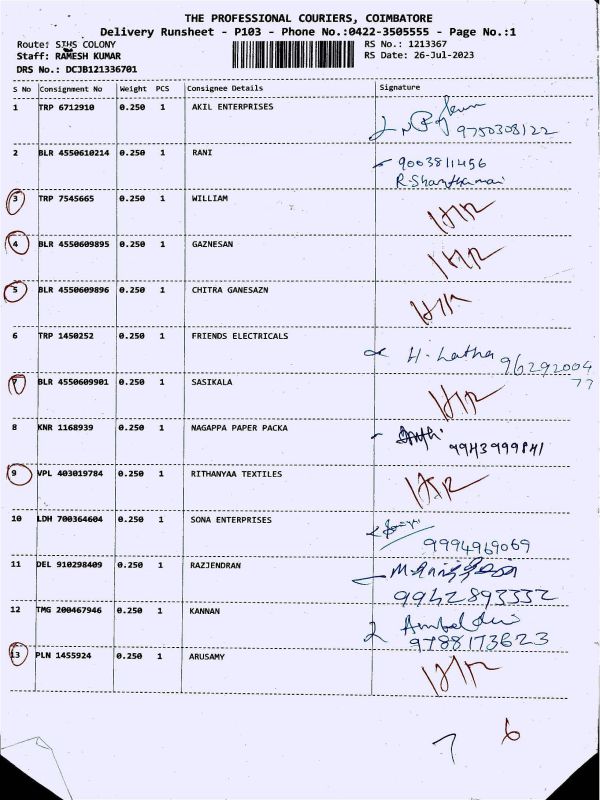 THE PROFESSIONAL COURIERS, COIMBATORE
Delivery Runsheet - P103 - Phone No.:0422-3505555 - Page No.:1
Route: SIHS COLONY RS No.: 1213367
Staff: RAMESH KUMAR RS Date: 26-Jul-2023
DRS No.: DCJB121336701
S No Consignment No Weight PCS Consignee Details Signature
1 TRP 6712910 0.250 1 AKIL ENTERPRISES
9750308122
2 BLR 4550610214 0.250 1 RANI 9003811456
3 TRP 7545665 0.250 1 WILLIAM
4 BLR 4550609895 0.250 1 GAZNESAN
5 BLR 4550609896 0.250 1 CHITRA GANESAZN
6 TRP 1450252 0.250 1 FRIENDS ELECTRICALS H. Latha 96292004
77
7 BLR 4550609901 0.250 1 SASIKALA
8 KNR 1168939 0.250 1 NAGAPPA PAPER PACKA
9943999841
9 VPL 403019784 0.250 1 RITHANYAA TEXTILES
10 LDH 700364604 0.250 1 SONA ENTERPRISES
9994969069
11 DEL 910298409 0.250 1 RAZJENDRAN
9942893332
12 TMG 200467946 0.250 1 KANNAN
9788173623
13 PLN 1455924 0.250 1 ARUSAMY
7 6